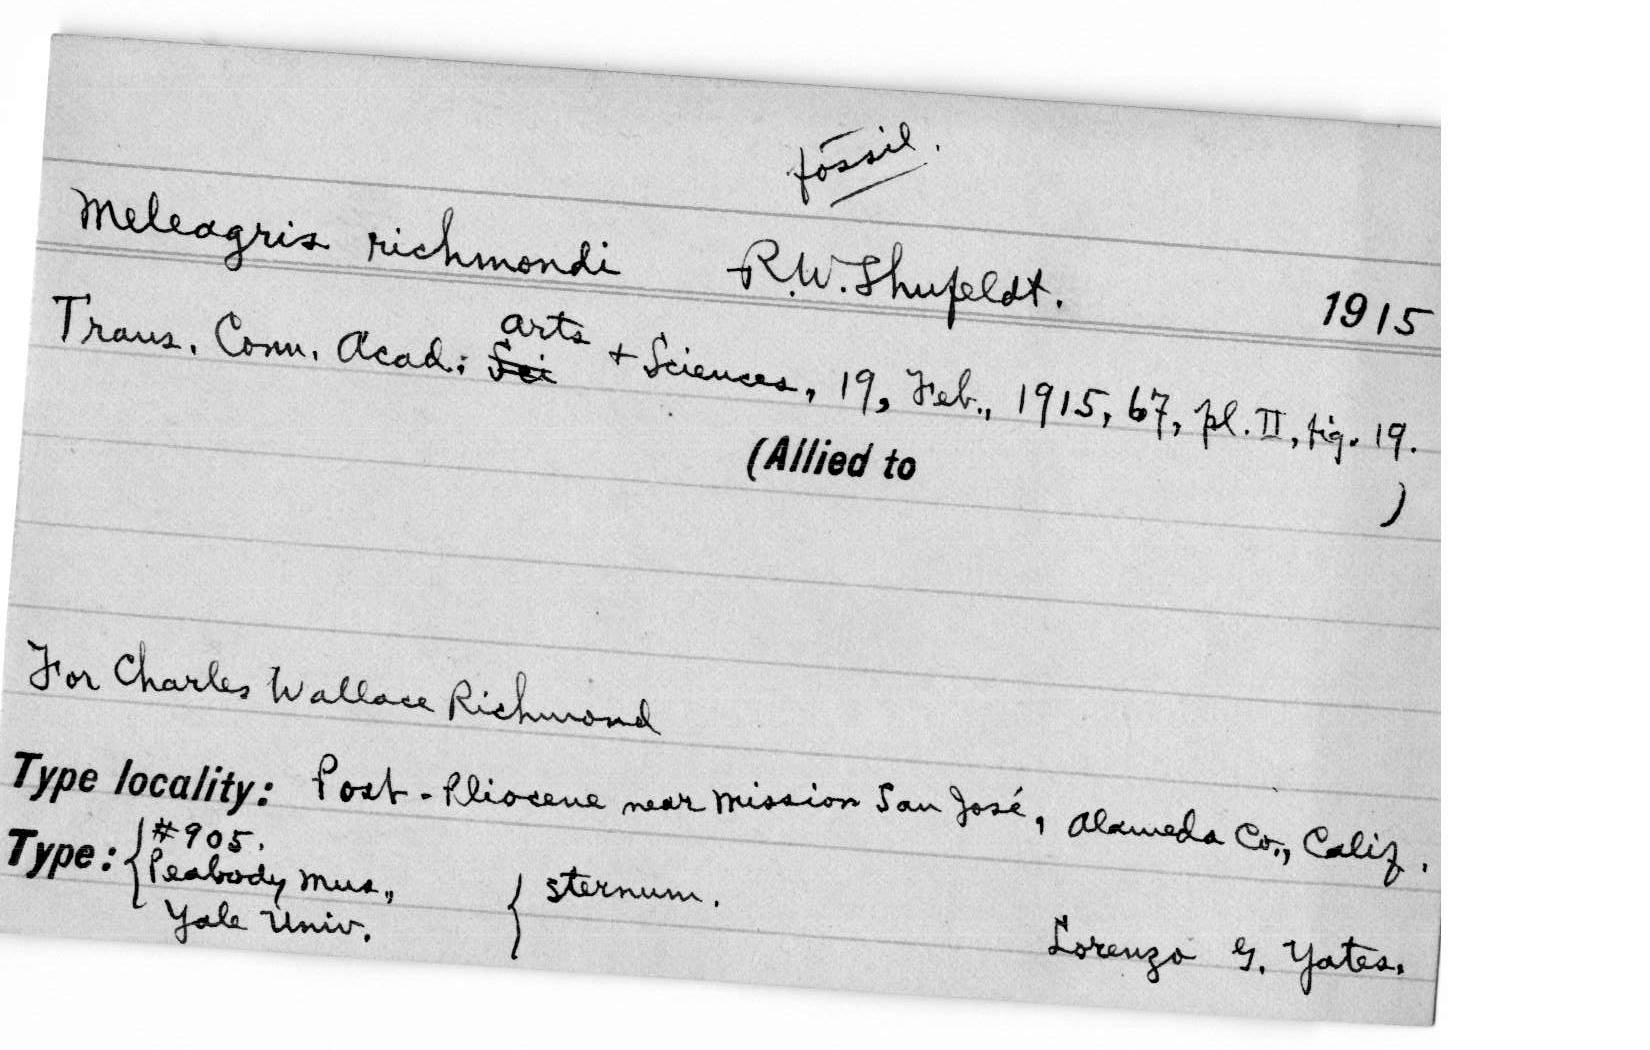 fossil.
Meleagris richmondi R.W. Shufeldt. 1915
Trans. Conn. Acad. Sci Arts + Sciences, 19, Feb., 1915, 67, pl. II, fig. 19.
(Allied to )
For Charles Wallace Richmond
Type locality: Post-Pliocene near Mission San José, Alameda Co., Calif.
Type: { #905. Peabody Mus., Yale Univ. { sternum.
Lorenzo G. Yates.